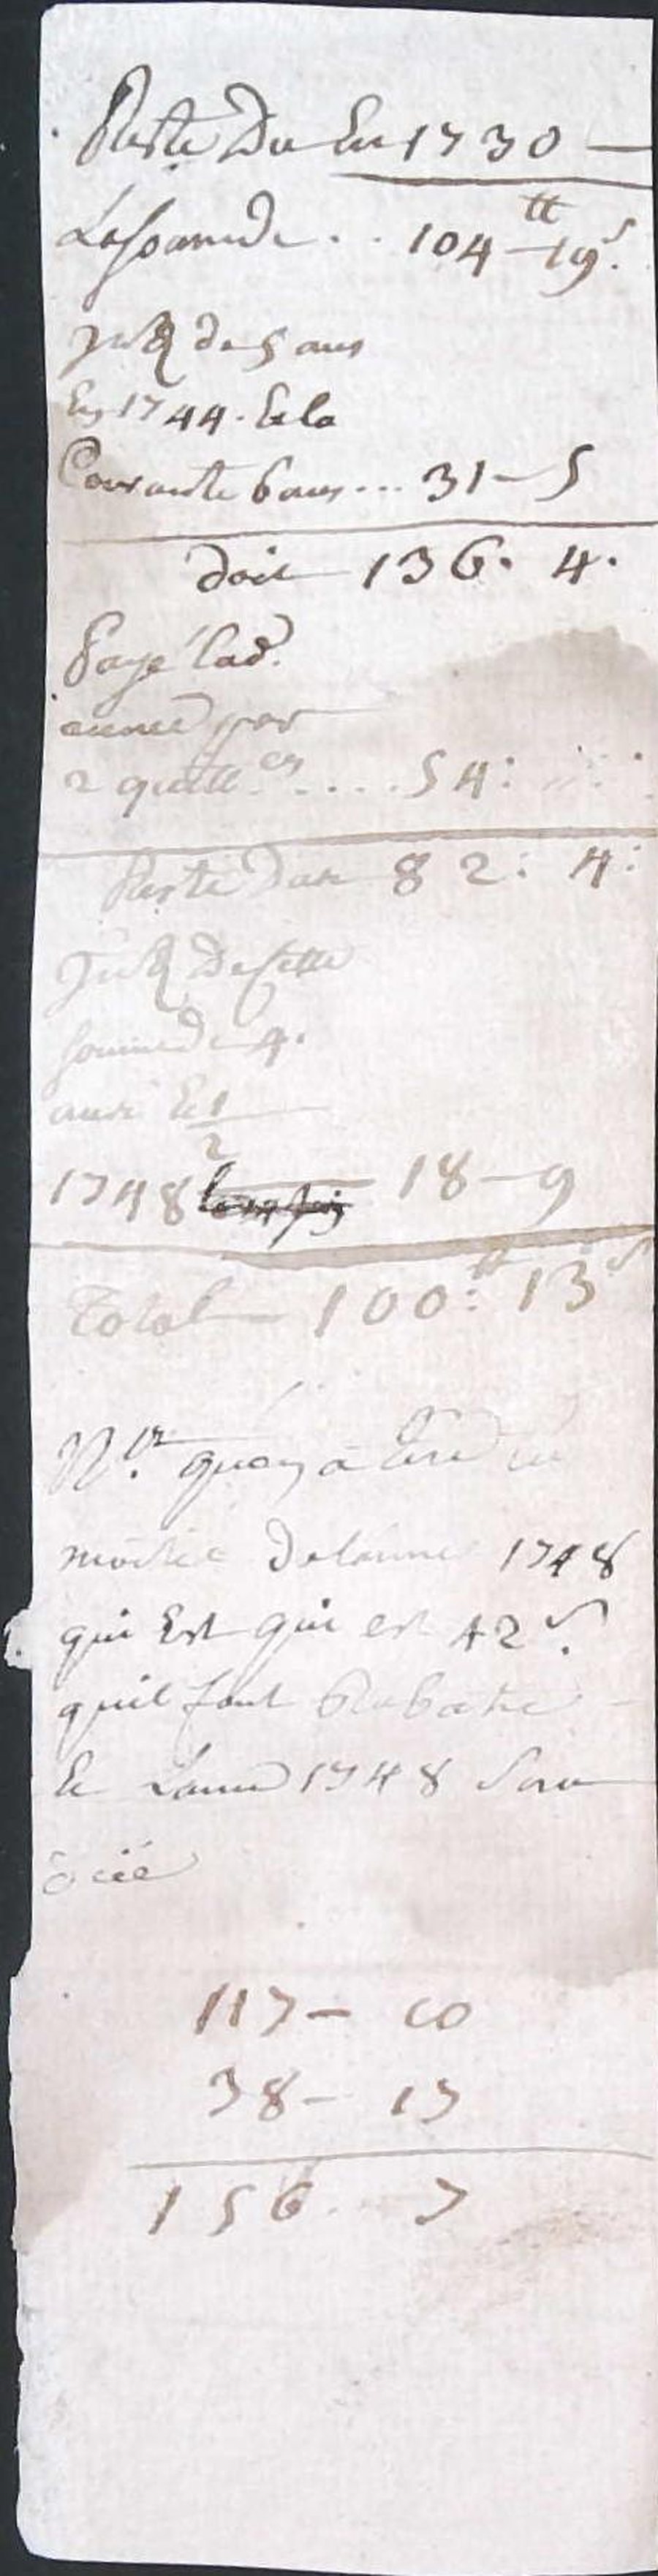 Reste Du En 1730 —
La somme de . . 104 tt — 19 s.
de 5 ans
En 1744. Et la
Courante 6 ans ... 31 — 5
doit 136. 4.
Payé lad.
année par
2 quitt.ces .... 54 :
Reste dan 82 : 4 :
De cette
somme de 4.
ans Et 1/2
1748 18 — 9
Total — 100 : tt 13 s
quon a
moitié De lannée 1748
qui Est qui est 42 s.
quil faut Rabatre
Et Lannée 1748 Sera
117 — 10
38 — 13
156 — 7